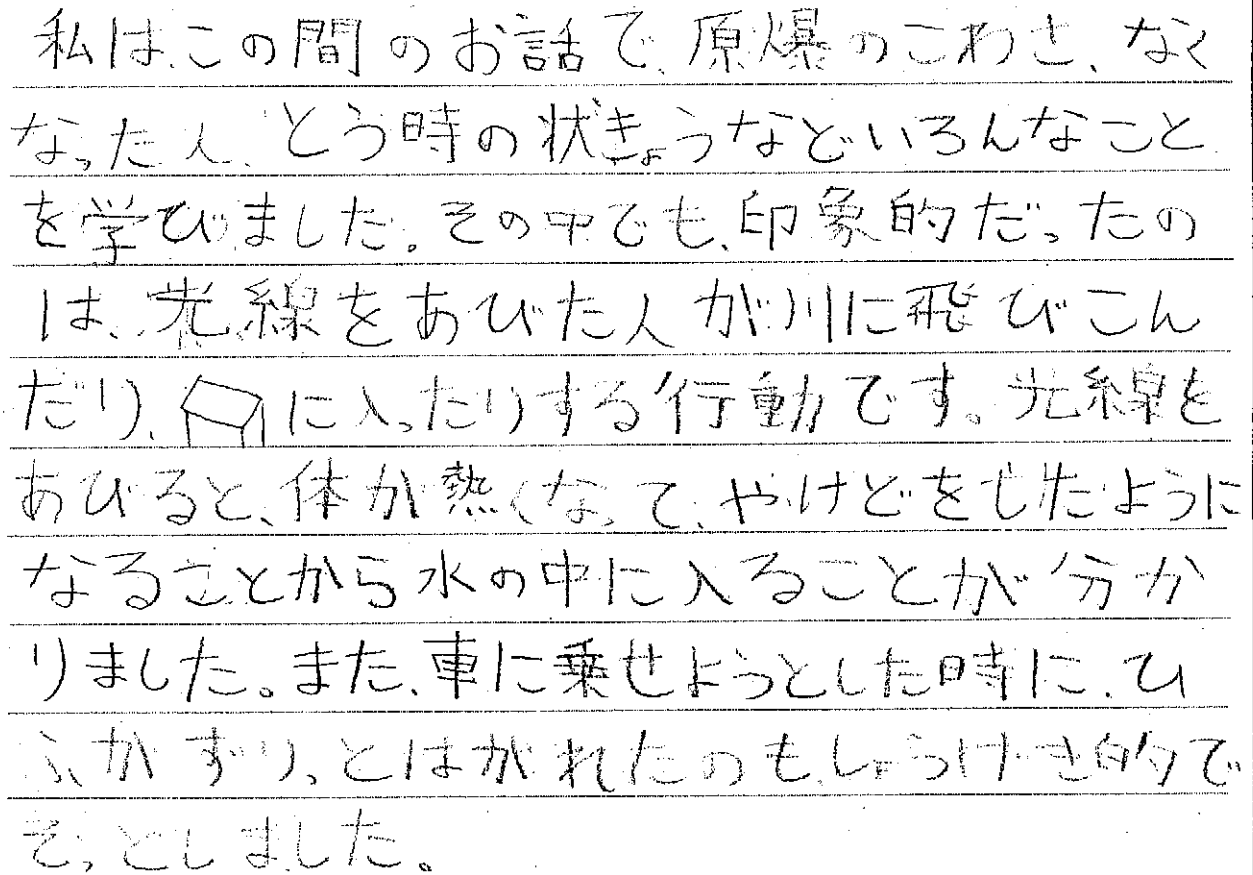 私はこの間のお話で、原爆のこわさ、なく
なった人、とう時の状きょうなどいろんなこと
を学びました。その中でも、印象的だったの
は、光線をあびた人が川に飛びこん
だり、に入ったりする行動です。光線を
あびると、体が熱くなって、やけどをしたように
なることから水の中に入ることが分か
りました。また、車に乗せようとした時に、ひ
ふがずりっとはがれたのもしょうげき的で
ぞっとしました。